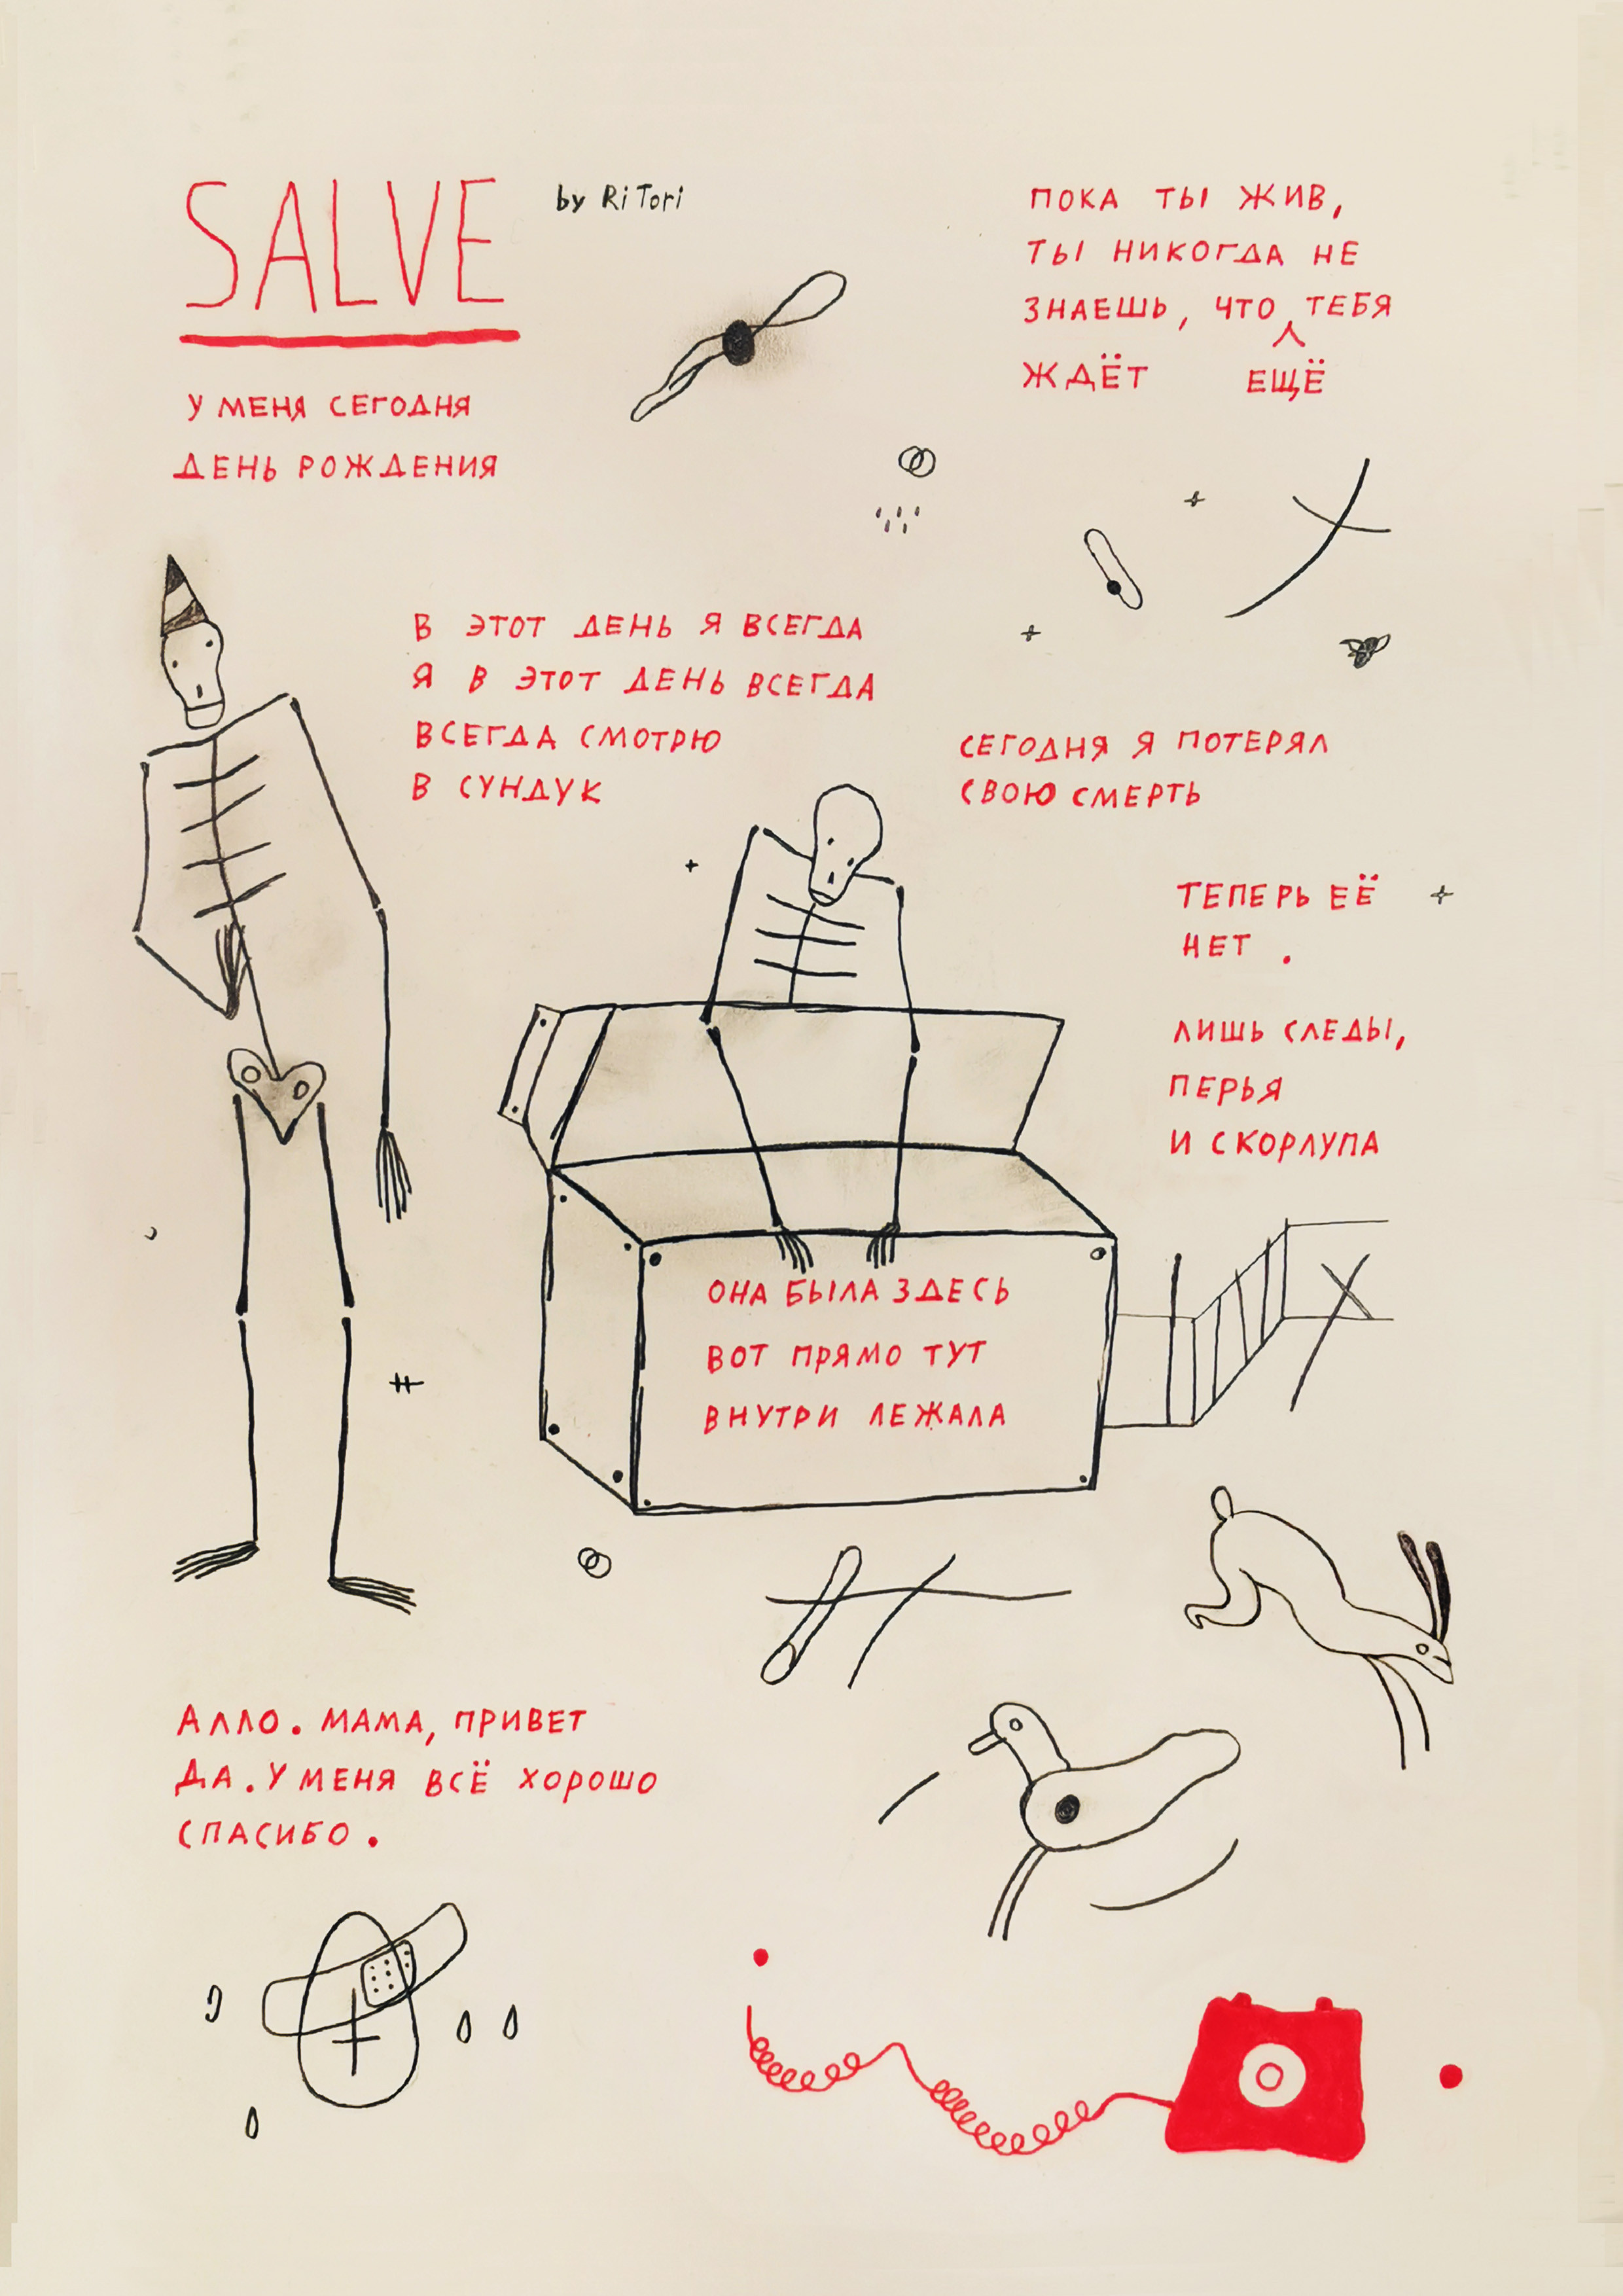 SALVE
by Ri Tori
ПОКА ТЫ ЖИВ,
ТЫ НИКОГДА НЕ
ЗНАЕШЬ, ЧТО ТЕБЯ
ЖДЁТ ЕЩЁ
У МЕНЯ СЕГОДНЯ
ДЕНЬ РОЖДЕНИЯ
В ЭТОТ ДЕНЬ Я ВСЕГДА
Я В ЭТОТ ДЕНЬ ВСЕГДА
ВСЕГДА СМОТРЮ
В СУНДУК
СЕГОДНЯ Я ПОТЕРЯЛ
СВОЮ СМЕРТЬ
ТЕПЕРЬ ЕЁ
НЕТ .
ЛИШЬ СЛЕДЫ,
ПЕРЬЯ
И СКОРЛУПА
ОНА БЫЛА ЗДЕСЬ
ВОТ ПРЯМО ТУТ
ВНУТРИ ЛЕЖАЛА
АЛЛО. МАМА, ПРИВЕТ
ДА. У МЕНЯ ВСЁ ХОРОШО
СПАСИБО.